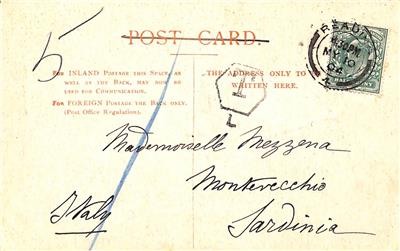 POST CARD.
5
FOR INLAND POSTAGE THIS SPACE, AS
WELL AS THE BACK, MAY NOW BE
USED FOR COMMUNICATION.
FOR FOREIGN POSTAGE THE BACK ONLY.
(Post Office Regulation).
THE ADDRESS ONLY TO
WRITTEN HERE.
T
L
READI
PM
MY 10
04
Mademoiselle Mezzena
Montevecchio
Italy
Sardinia